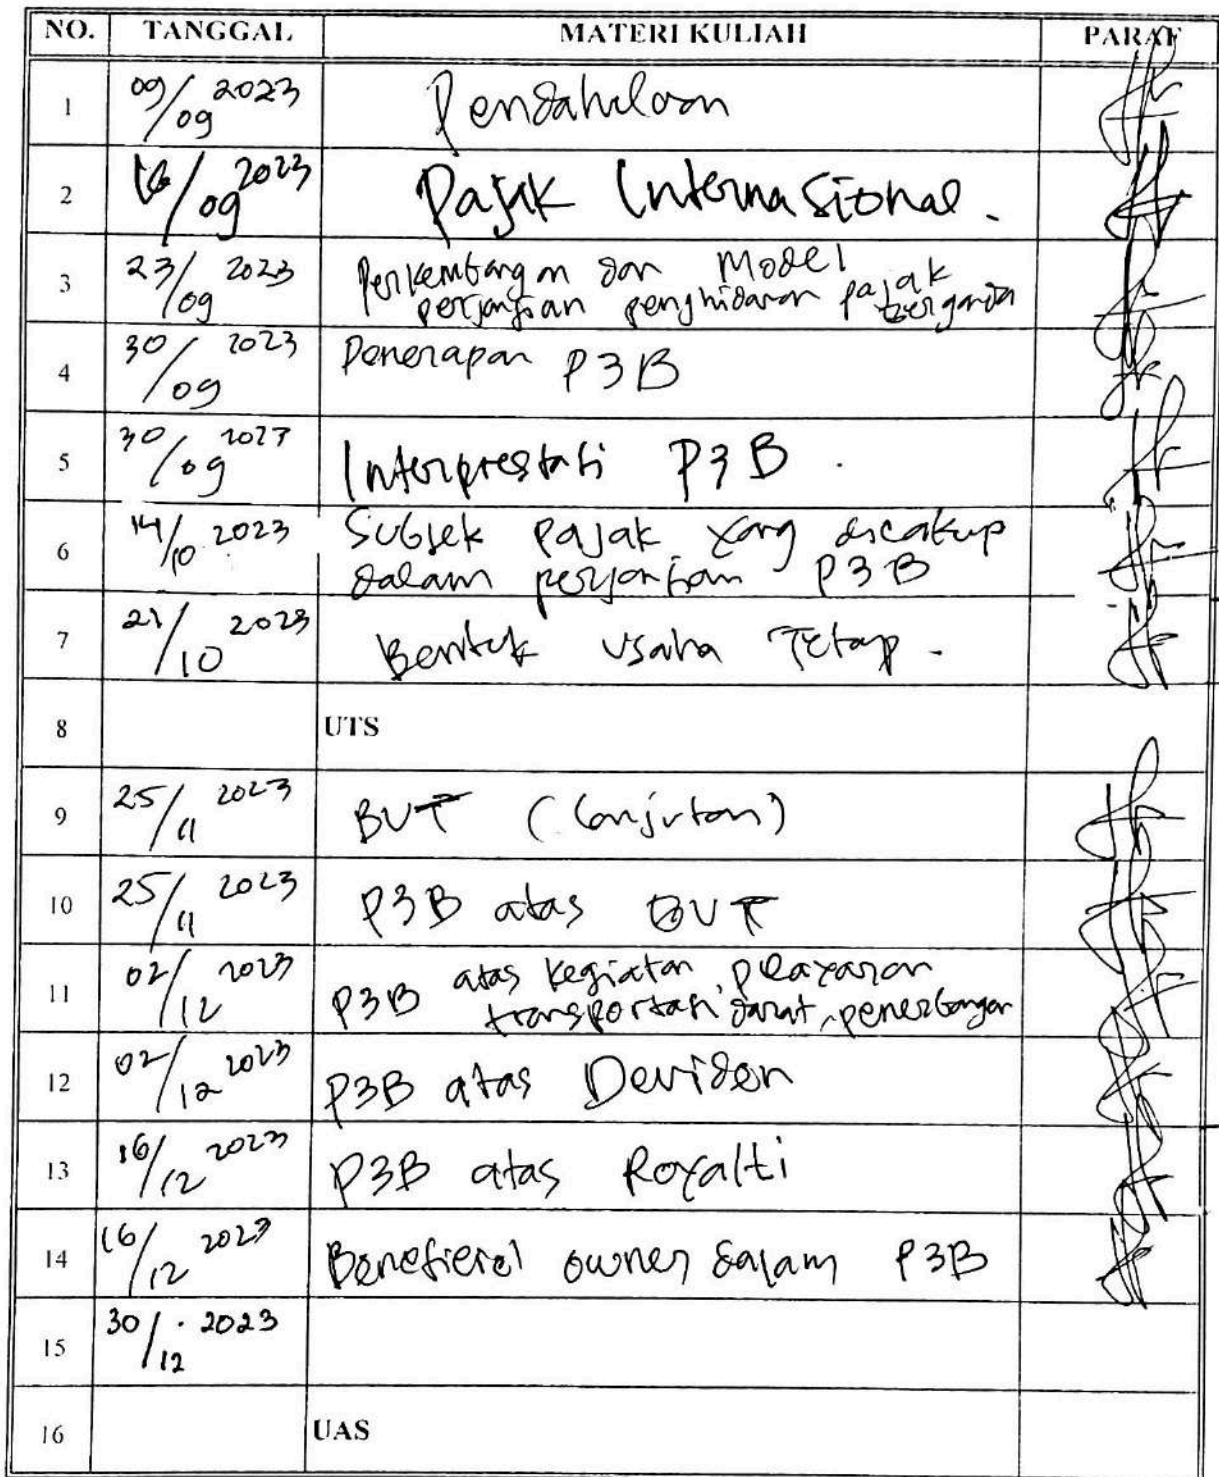 NO. TANGGAL MATERI KULIAH PARAF
1 09/09 2023 Pendahuloan
2 16/09 2023 Pajak Internasional.
3 23/09 2023 Perkembangan dan Model
perjanjian penghidaran pajak berganda
4 30/09 2023 Penerapan P3B
5 30/09 2023 Interprestasi P3B.
6 14/10 2023 Subjek pajak yang dicakup
dalam perjanjian P3B
7 21/10 2023 Bentuk usaha Tetap.
8 UTS
9 25/11 2023 BUT (Lanjutan)
10 25/11 2023 P3B atas BUT
11 02/12 2023 P3B atas kegiatan, pelayaran
transportasi darat, penerbangan
12 02/12 2023 P3B atas Deviden
13 16/12 2023 P3B atas Royalti
14 16/12 2023 owner dalam P3B
15 30/12 2023
16 UAS